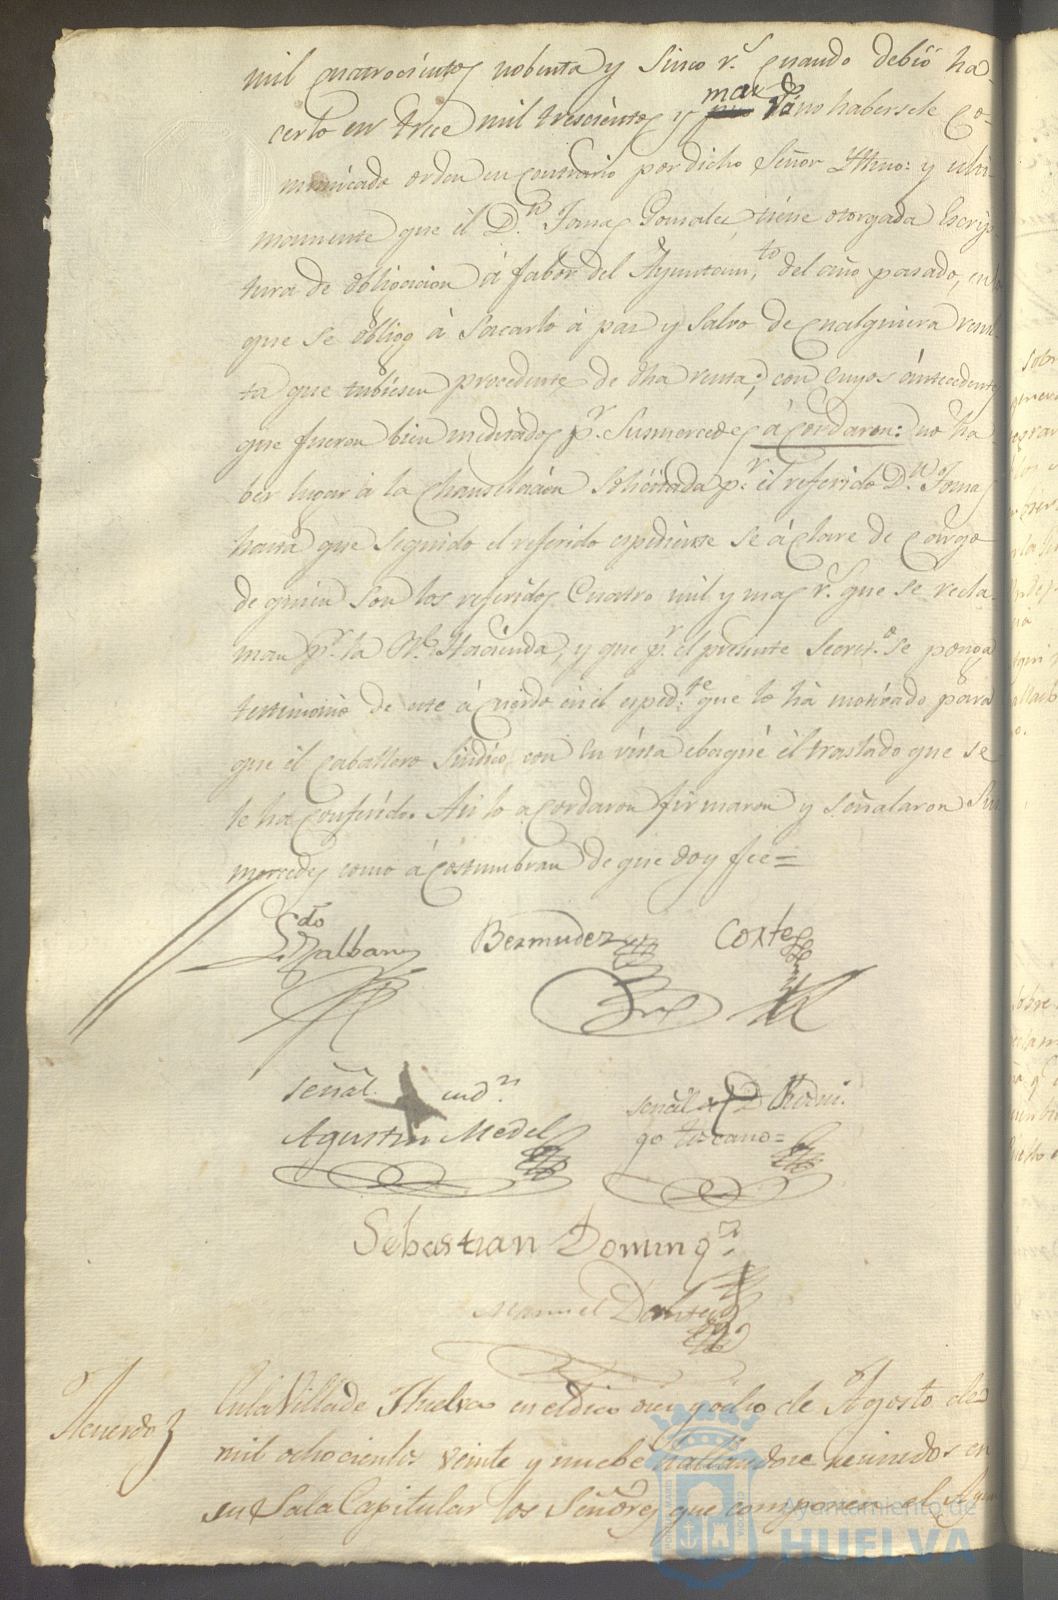 mil cuatrocientos nobenta y sinco r.s cuando debió ha
cerlo en trece mil trescientos y mas r.s no habersele co-
municado orden en contrario por dicho Señor Yttmo: y ulti-
mamente que él D.n Tomas Gonzalez, tiene otorgada Escrip-
tura de obligacion á fabor del Ayuntam.to del año pasado, en la
que se obligó á sacarlo á paz y salvo de cualquiera resul-
ta que tubiesen procedente de dha renta; con cuyos ántecedentes
que fueron bien meditados p.r Susmercedes ácordaron: no ha
ber lugar á la Chanselacion Solicitada p.r él referido D.n Tomas
hasta que seguido el referido espediente se áclare de cargo
de quien son los referidos Cuatro mil y mas r.s que se recla-
man p.r la R.l Hacienda, y que p.r el presente Secret.o se ponga
testimonio de este ácuerdo en el esped.te que lo há motivado para
que él caballero Sindico con su vista ebaque él traslado que se
le ha conferido. Asi lo acordaron firmaron y señalaron Sus
mercedes como ácostumbran de que doy fee=
L.do Malban Bermudez Cortes
señal. ind.n señal de Rodri
Agustin Medel go Liscano=
Sebastian Doming.z
Manuel
Acuerdo En la Villa de Huelva en el dia diez y ocho de Agosto de
mil ochocientos veinte y nuebe hallandose reunidos en
su Sala Capitular los Señores que componen el Ayun
Ayuntamiento de
HUELVA